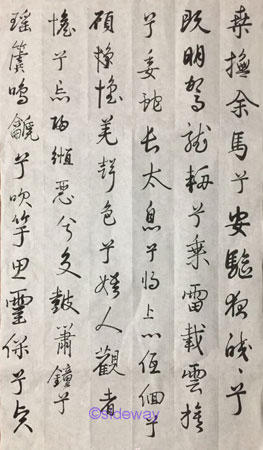 桑撫余馬兮安驅夜皎〻兮
既明駕龍輈兮乘雷載雲旗
兮委蛇長太息兮將上心低佪兮
顧懷羌聲色兮娛人觀者
憺兮忘歸縆瑟兮交鼓簫鐘兮
瑤簴鳴䶵兮吹竽思靈保兮賢
©sideway